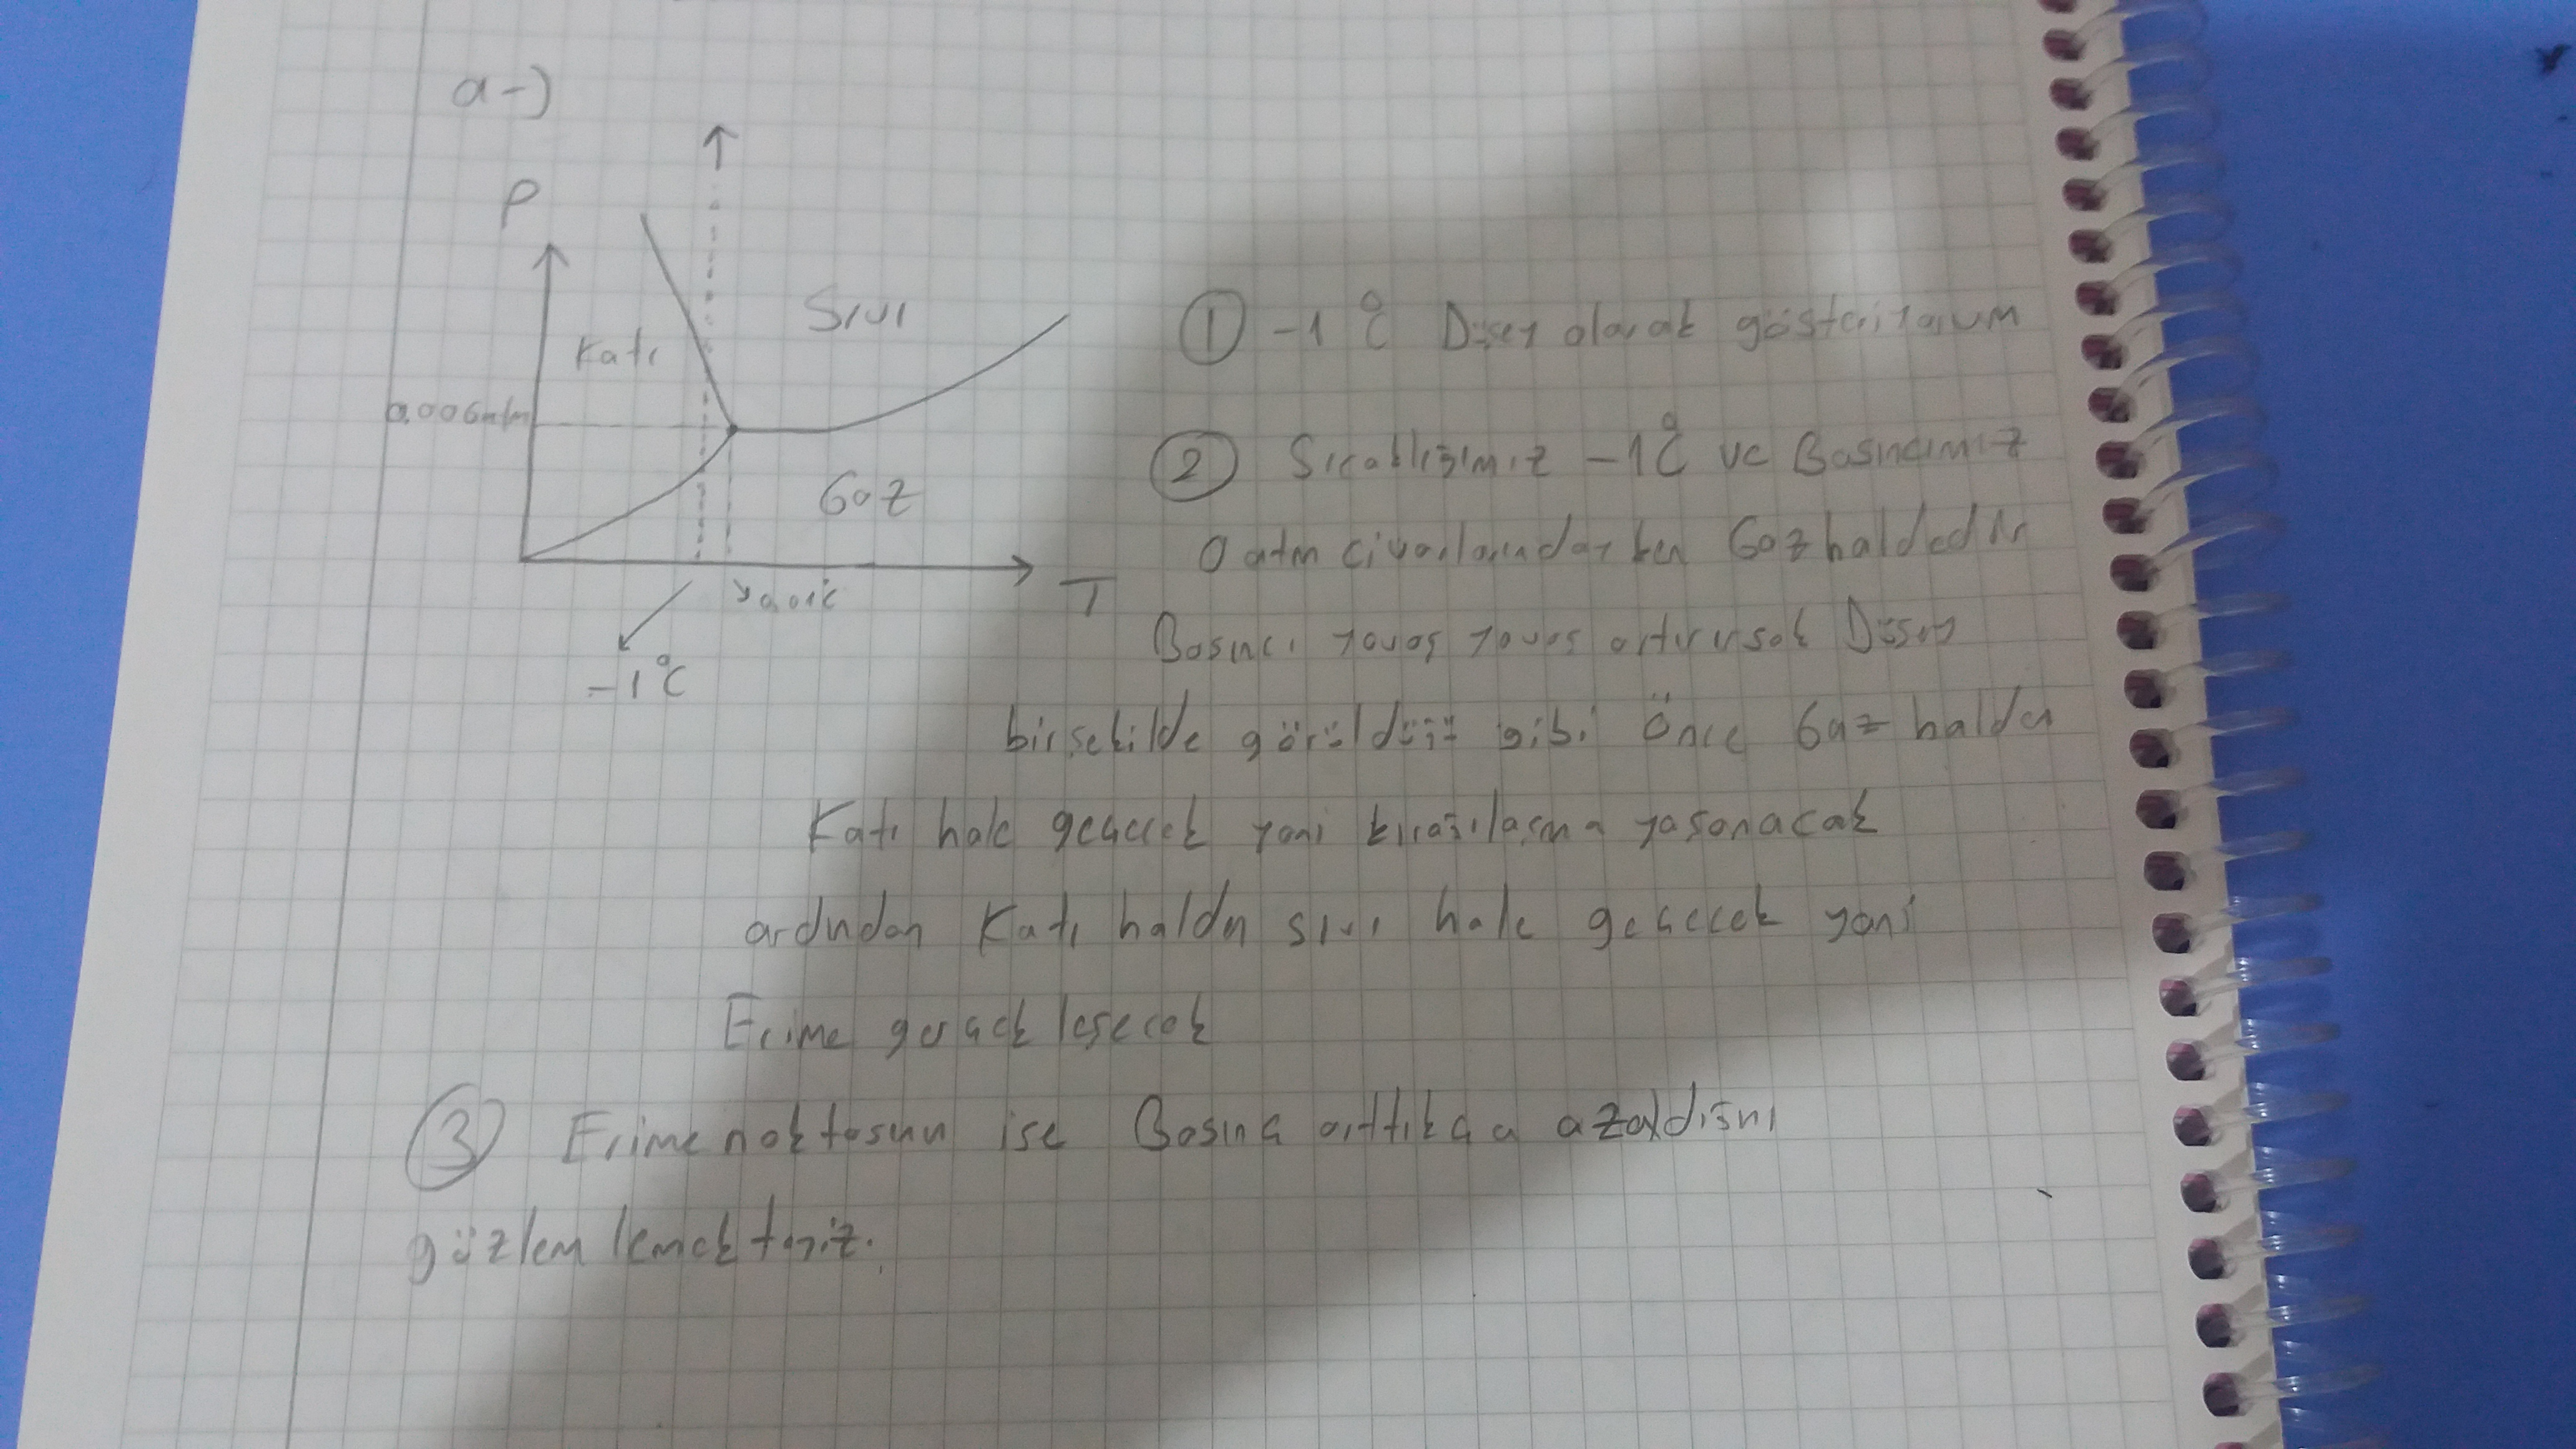 a-)
P
Katı
Sıvı
0.006atm
Gaz
T
0.01°C
-1°C
① -1°C Düşey olarak gösteriyorum
② Sıcaklığımız -1°C ve Basıncımız
0 atm civarlarındayken Gaz haldedir
Basıncı yavaş yavaş artırırsak Düşey
bir şekilde görüldüğü gibi Önce Gaz halden
Katı hale geçecek yani kırağılaşma yaşanacak
ardından Katı halden sıvı hale geçecek yani
Erime gerçekleşecek
③ Erime noktasının ise Basınç arttıkça azaldığını
gözlemlemekteyiz.